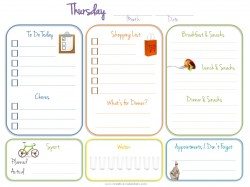 Thursday
Month Date
To Do Today
Shopping List
Breakfast & Snacks
Lunch & Snacks
Chores
What's for Dinner?
Dinner & Snacks
Sport
Planned
Actual
Water
Appointments / Don't Forget